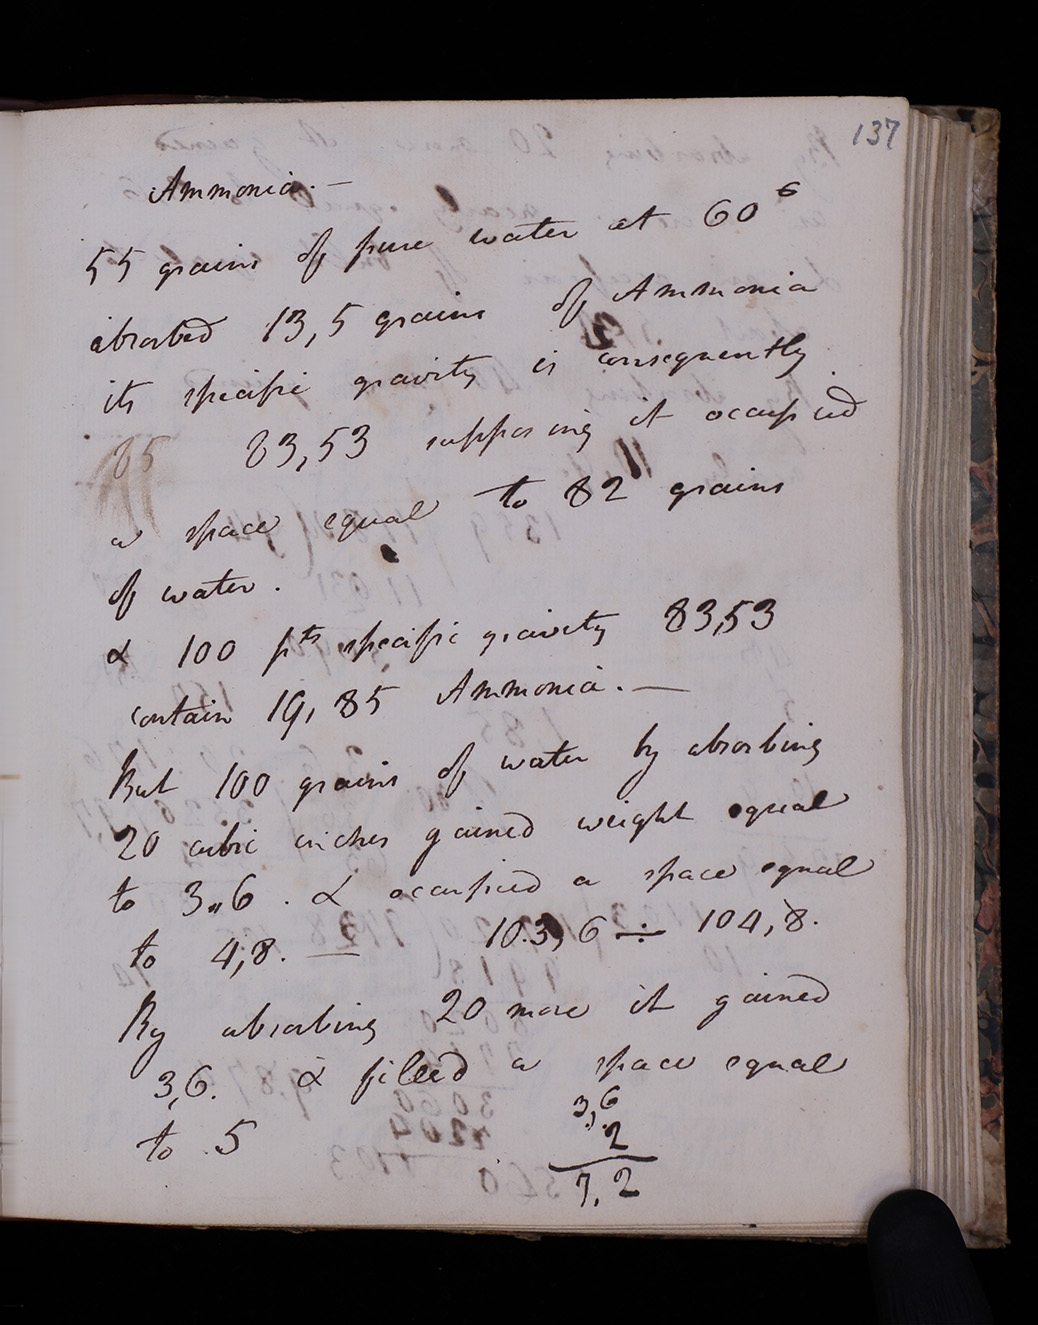 137
Ammonia. —
55 grains of pure water at 60°
absorbed 13,5 grains of Ammonia
its specific gravity is consequently
85 83,53 supposing it occupied
a space equal to 82 grains
of water.
& 100 pts specific gravity 83,53
contain 19,85 Ammonia. —
But 100 grains of water by absorbing
20 cubic inches gained weight equal
to 3,,6. & occupied a space equal
to 4,8. — 103,6 ÷ 104,8.
By absorbing 20 more it gained
3,6. & filled a space equal
to 5
3,6
2
7,2